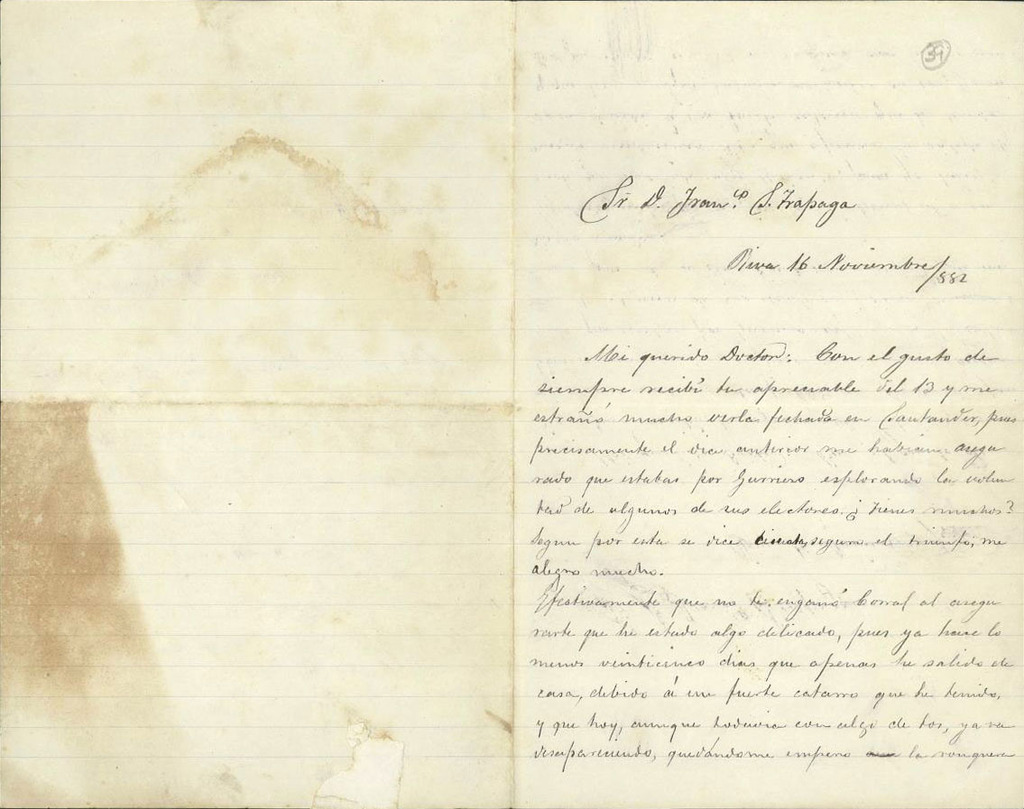 39
Sr D. Franco S. Trapaga
Riva 16 Noviembre/882
Mi querido Doctor: Con el gusto de
siempre recibí tu apreciable del 13 y me
estrañó mucho verla fechada en Santander, pues
precisamente el dia anterior me habian asegu
rado que estabas por Guriezo esplorando la volun
tad de algunos de sus electores ¿tienes muchos?
Segun por esta se dice seguro el triunfo, me
alegro mucho.
Efectivamente que no te engañó Corral al asegu
rarte que he estado algo delicado, pues ya hace lo
menos veinticinco dias que apenas he salido de
casa, debido á un fuerte catarro que he tenido,
y que hoy, aunque todavia con algo de tos, ya va
desapareciendo, quedándome empero la ronquera